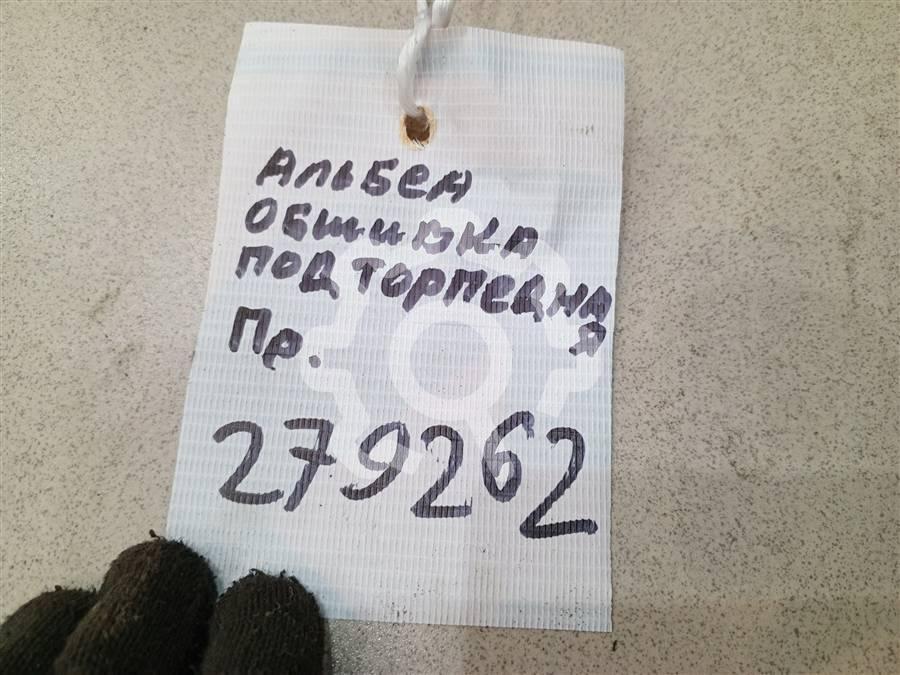 Альбеа
Обшивка
подторпедна
я
Пр.
279262